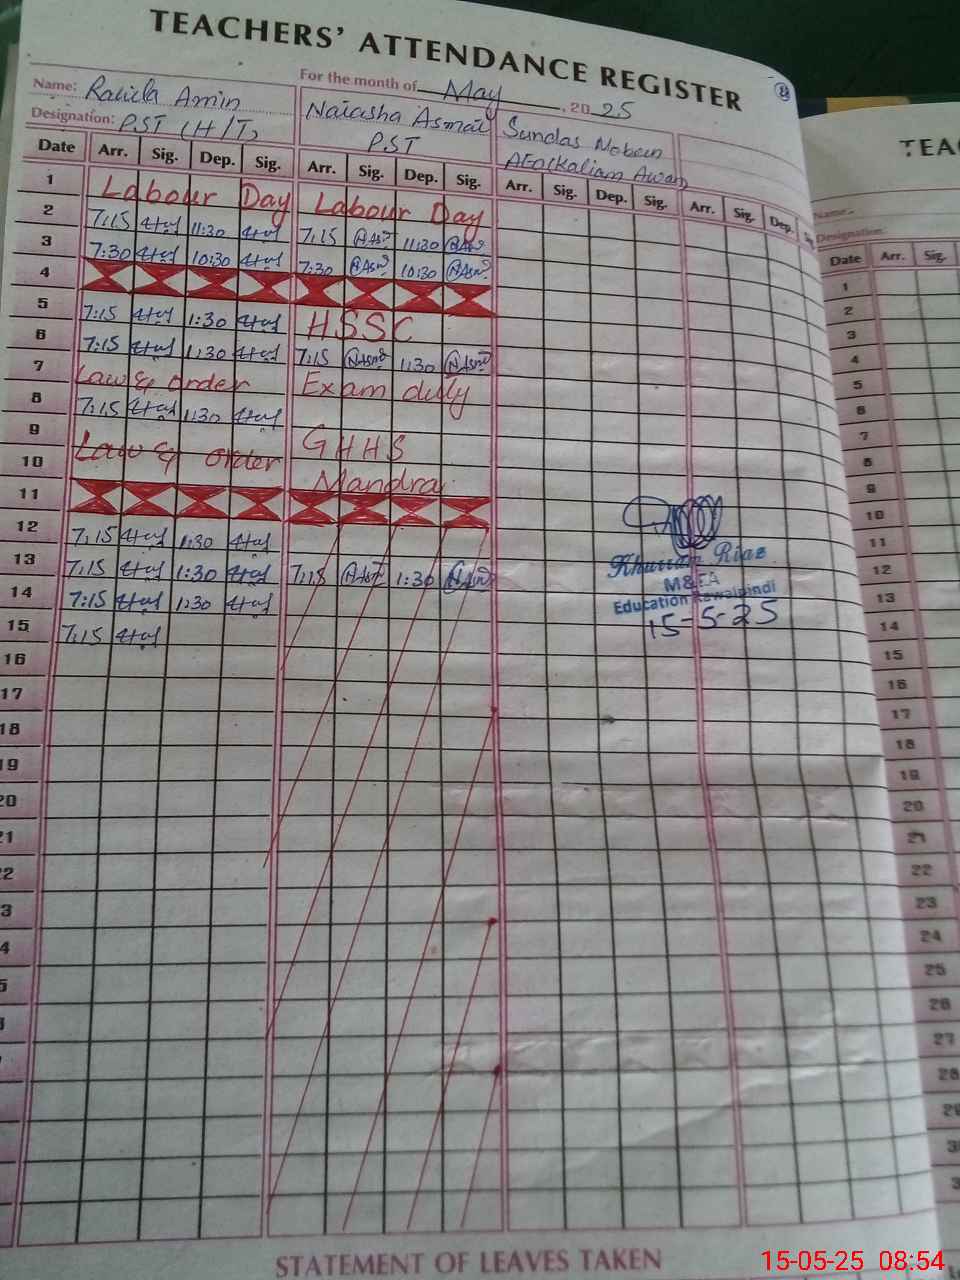 TEACHERS' ATTENDANCE REGISTER
For the month of May, 2025
Name: Amin
Designation: PST (H/T)
Asmat
PST
Sundas
Awan
Date Arr. Sig. Dep. Sig. Arr. Sig. Dep. Sig. Arr. Sig. Dep. Sig. Arr. Sig. Dep.
1 Labour Day Labour Day
2 7:15 11:30 7:15 11:30
3 7:30 10:30 7:30 10:30
4
5 7:15 1:30 HSSC
6 7:15 1:30 7:15 1:30
7 Law & order Exam duty
8 7:15 1:30
9 GHHS
10 Law & order Mandra
11
12 7:15 1:30
13 7:15 1:30 7:15 1:30
14 7:15 1:30
15 7:15
16
17
18
19
20
Khurram Riaz
M&EA
Education Rawalpindi
15-5-25
STATEMENT OF LEAVES TAKEN
TEA
Name:
Designation:
Date Arr. Sig.
1
2
3
4
5
6
7
8
9
10
11
12
13
14
15
16
17
18
19
20
21
22
23
24
25
26
27
28
15-05-25 08:54